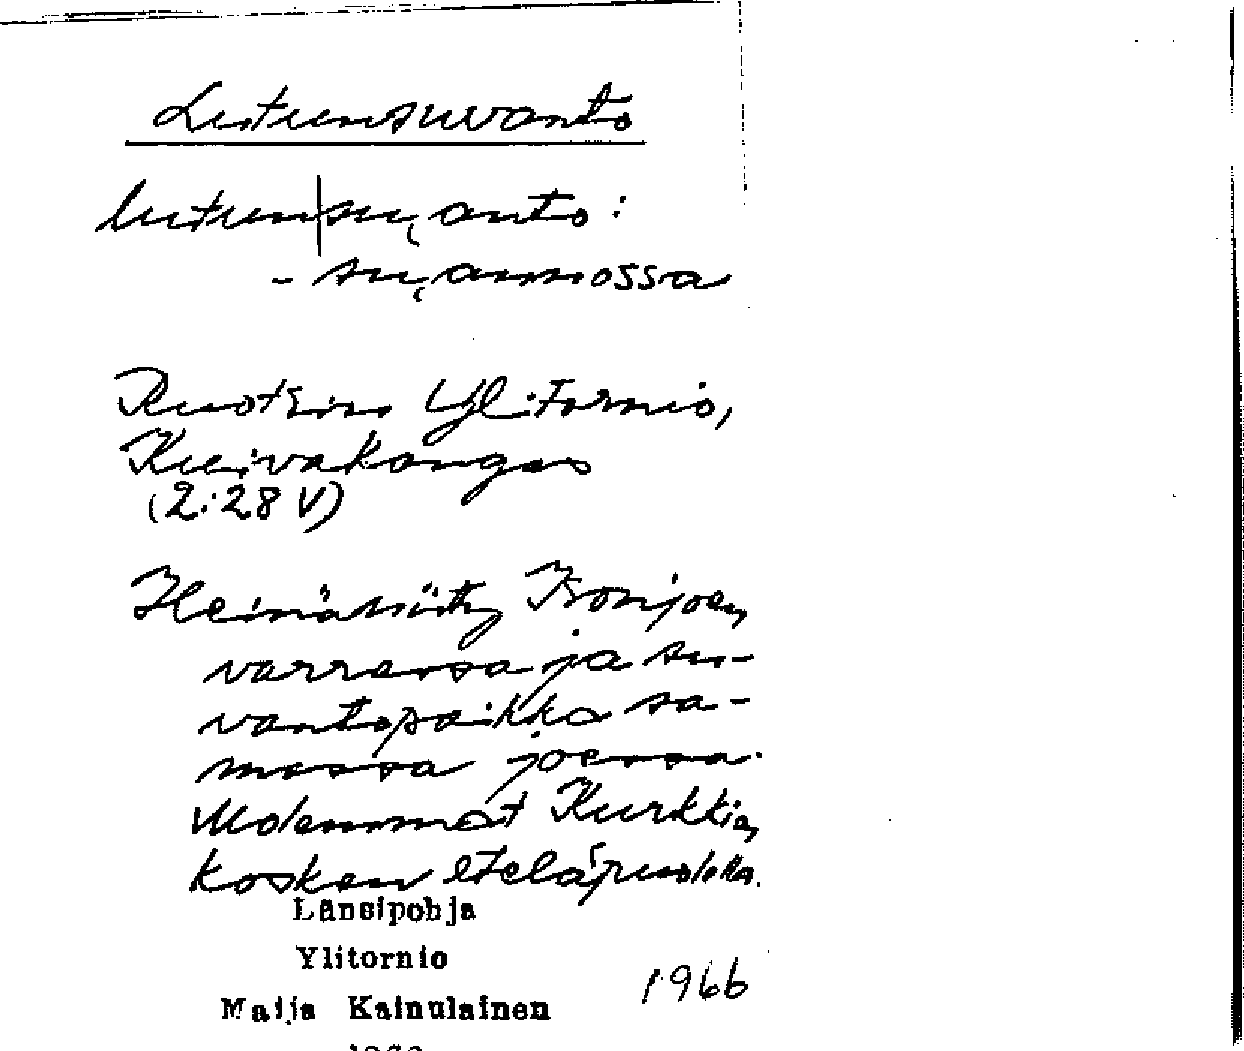 Lutunsuvanto
lutun|su̯anto:
- su̯annossa
Ruotsin Ylitornio,
Kuivakangas
(2:28 V)
Heinäniitty Isonjoen
varressa ja su-
vantopaikka sa-
massa joessa.
Molemmat Kurkkia
kosken eteläpuolella.
Länsipohja
Ylitornio
Maija Kainulainen
1966